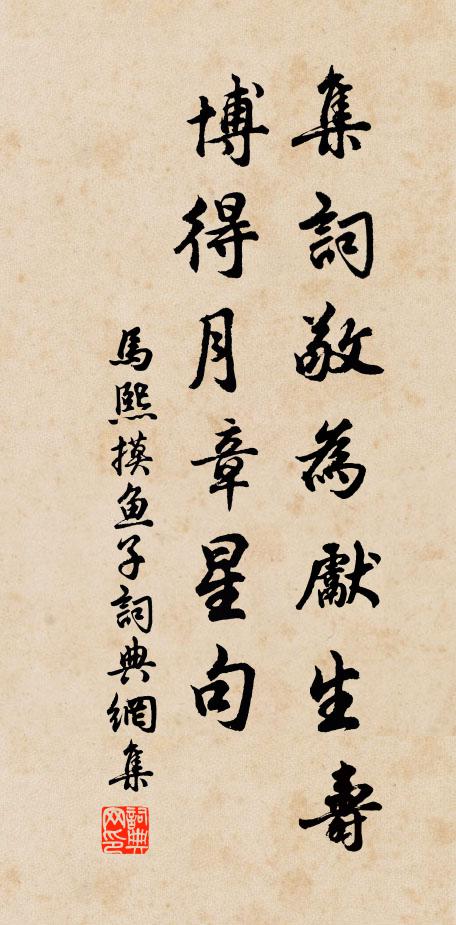 集詞敬為獻生壽
博得月章星句
馬熙摸魚子詞典網集
詞典网印